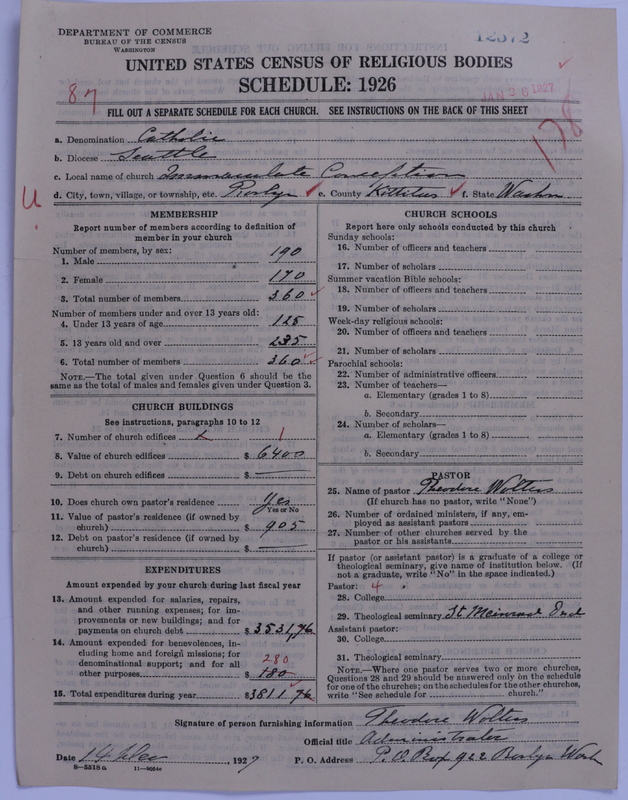 DEPARTMENT OF COMMERCE
BUREAU OF THE CENSUS
WASHINGTON
12372
UNITED STATES CENSUS OF RELIGIOUS BODIES
SCHEDULE: 1926
87
JAN 26 1927
178
FILL OUT A SEPARATE SCHEDULE FOR EACH CHURCH. SEE INSTRUCTIONS ON THE BACK OF THIS SHEET
a. Denomination Catholic
b. Diocese Seattle
c. Local name of church Immaculate Conception
U
d. City, town, village, or township, etc. Roslyn e. County Kittitas f. State Washn
MEMBERSHIP
Report number of members according to definition of
member in your church
Number of members, by sex:
1. Male 190
2. Female 170
3. Total number of members 360
Number of members under and over 13 years old:
4. Under 13 years of age 125
5. 13 years old and over 235
6. Total number of members 360
NOTE.—The total given under Question 6 should be the
same as the total of males and females given under Question 3.
CHURCH BUILDINGS
See instructions, paragraphs 10 to 12
7. Number of church edifices 1
8. Value of church edifices $ 6400
9. Debt on church edifices $ —
10. Does church own pastor's residence Yes
Yes or No
11. Value of pastor's residence (if owned by
church) $ 905
12. Debt on pastor's residence (if owned by
church) $ —
EXPENDITURES
Amount expended by your church during last fiscal year
13. Amount expended for salaries, repairs,
and other running expenses; for im-
provements or new buildings; and for
payments on church debt $ 3531,76
14. Amount expended for benevolences, in-
cluding home and foreign missions; for
denominational support; and for all 280
other purposes $ 180
15. Total expenditures during year $ 3811 76
CHURCH SCHOOLS
Report here only schools conducted by this church
Sunday schools:
16. Number of officers and teachers
17. Number of scholars
Summer vacation Bible schools:
18. Number of officers and teachers
19. Number of scholars
Week-day religious schools:
20. Number of officers and teachers
21. Number of scholars
Parochial schools:
22. Number of administrative officers
23. Number of teachers—
a. Elementary (grades 1 to 8)
b. Secondary
24. Number of scholars—
a. Elementary (grades 1 to 8)
b. Secondary
PASTOR
25. Name of pastor Theodore Wolters
(If church has no pastor, write "None")
26. Number of ordained ministers, if any, em-
ployed as assistant pastors
27. Number of other churches served by the
pastor or his assistants
If pastor (or assistant pastor) is a graduate of a college or
theological seminary, give name of institution below. (If
not a graduate, write "No" in the space indicated.)
Pastor: 4
28. College
29. Theological seminary St. Meinrad Ind
Assistant pastor:
30. College
31. Theological seminary
NOTE.—Where one pastor serves two or more churches,
Questions 28 and 29 should be answered only on the schedule
for one of the churches; on the schedules for the other churches,
write "See schedule for church."
Signature of person furnishing information Theodore Wolters
Official title Administrator
Date 14 Dec, 1927 P. O. Address P.O. Box 922 Roslyn Wash
8—5518a 11—9064c